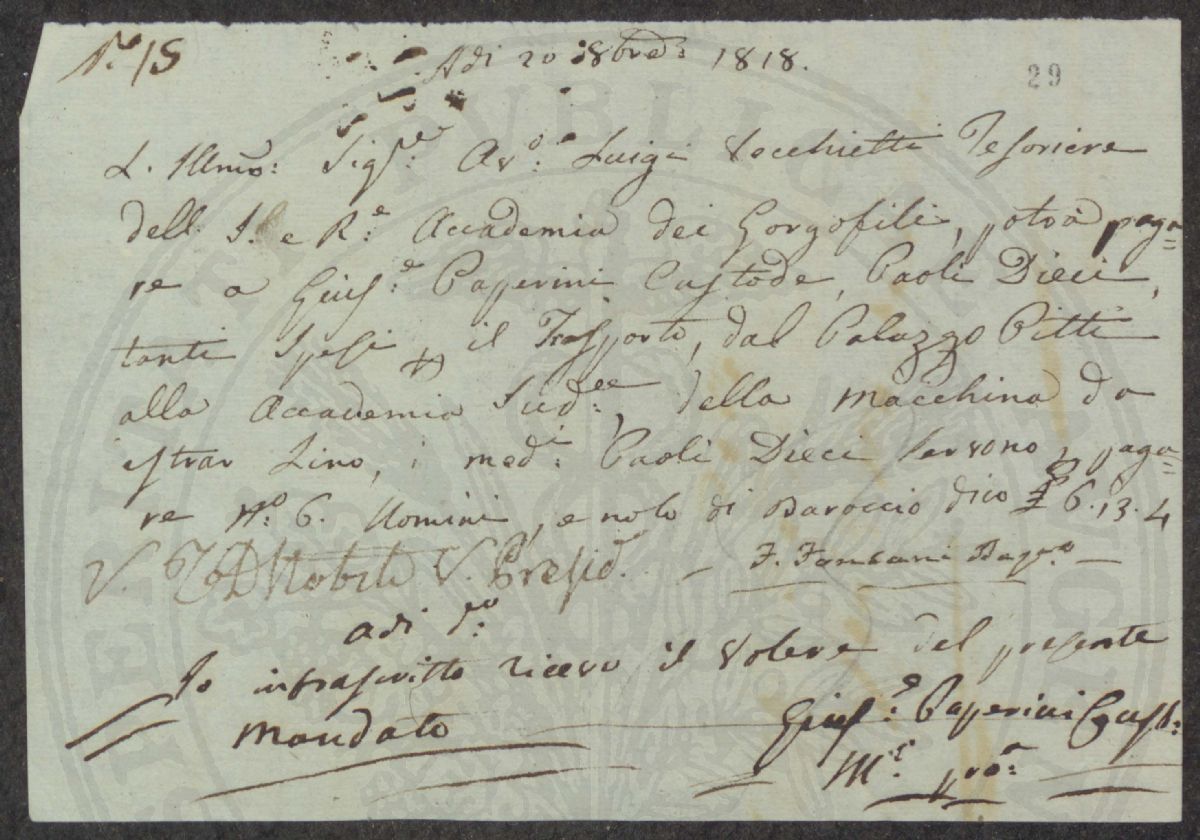 N.o 15
Adi 20 8bre: 1818.
29
L. Illmo: Sigre: Avo: Luigi Vecchietti Tesoriere
dell. I. e R.e Accademia dei Gorgofili, potrà paga=
re a Gius.e Paperini Custode, Paoli Dieci,
tanti Spesi p il Trasporto, dal Palazzo Pitti
alla Accademia Sud.ee, della Macchina da
strar Lino, i med.i Paoli Dieci servono p paga=
re N.o 6. Uomini, e nolo di Baroccio dico £ 6.13.4
V. Nobili V. Presid.
F. Fontani
adi po:
Io infrascritto ricevo il Valere del presente
Mandato
Gius.e Paperini Cust:
M.o pro.a
PUBLICAE